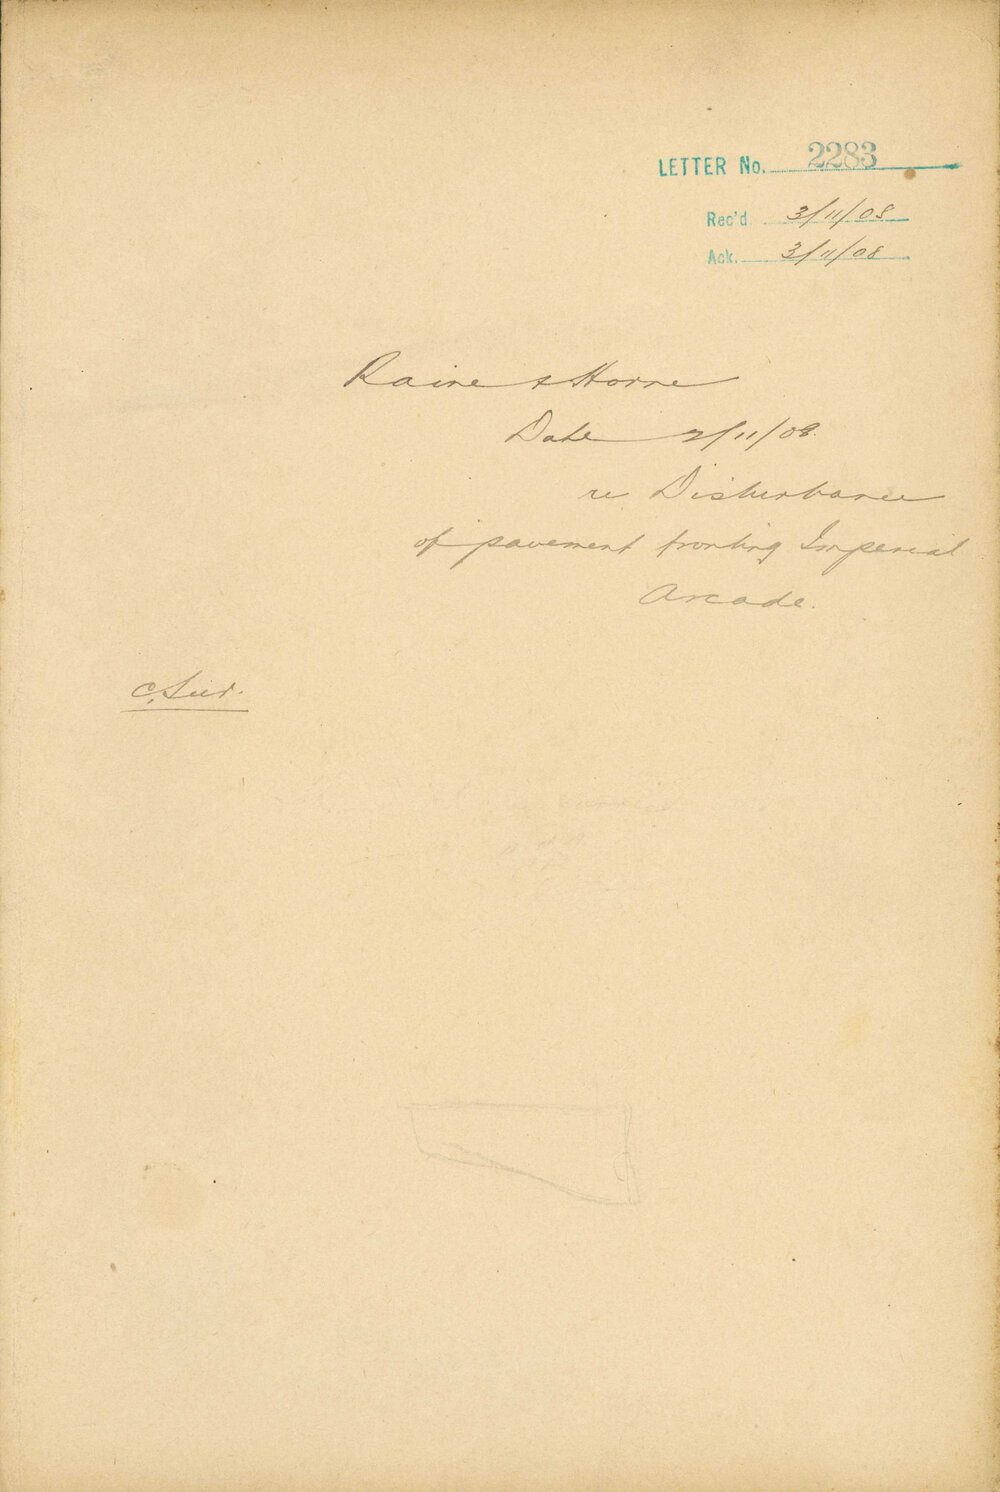 LETTER No. 2283
Rec'd 3/11/08
Ack. 3/11/08
Raine & Horne
Date 2/11/08.
re Disturbance
of pavement fronting Imperial
Arcade.